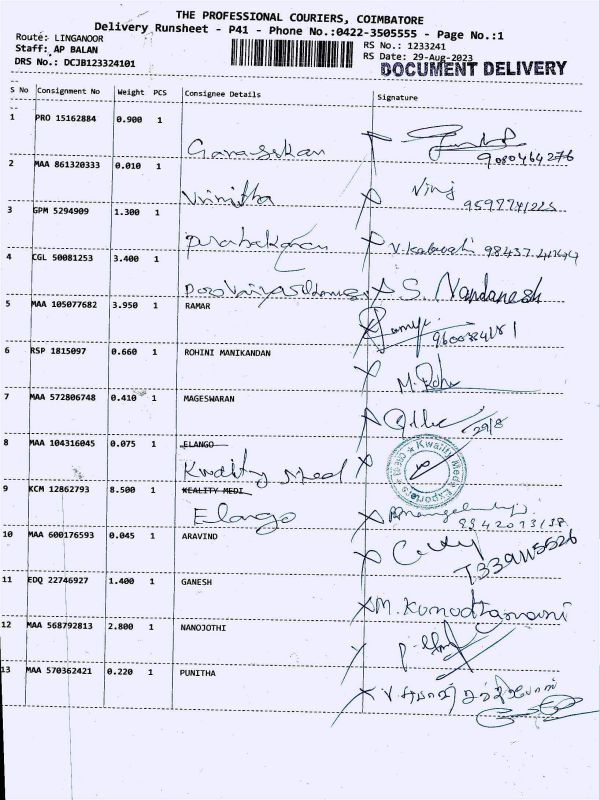 THE PROFESSIONAL COURIERS, COIMBATORE
Delivery Runsheet - P41 - Phone No.:0422-3505555 - Page No.:1
Route: LINGANOOR RS No.: 1233241
Staff: AP BALAN RS Date: 29-Aug-2023
DRS No.: DCJB123324101 DOCUMENT DELIVERY
S No Consignment No Weight PCS Consignee Details Signature
1 PRO 15162884 0.900 1
9080464276
2 MAA 861320333 0.010 1
Vrinitha
3 GPM 5294909 1.300 1
Prabakaran
4 CGL 50081253 3.400 1
S. Nandanesh
5 MAA 105077682 3.950 1 RAMAR
9600384181
6 RSP 1815097 0.660 1 ROHINI MANIKANDAN
7 MAA 572806748 0.410 1 MAGESWARAN
29/8
8 MAA 104316045 0.075 1 ELANGO
Kwality Med
Kwality Medi Exporters
9 KCM 12862793 8.500 1 KEALITY MEDI
Elango
10 MAA 600176593 0.045 1 ARAVIND
11 EDQ 22746927 1.400 1 GANESH
12 MAA 568792813 2.800 1 NANOJOTHI
13 MAA 570362421 0.220 1 PUNITHA